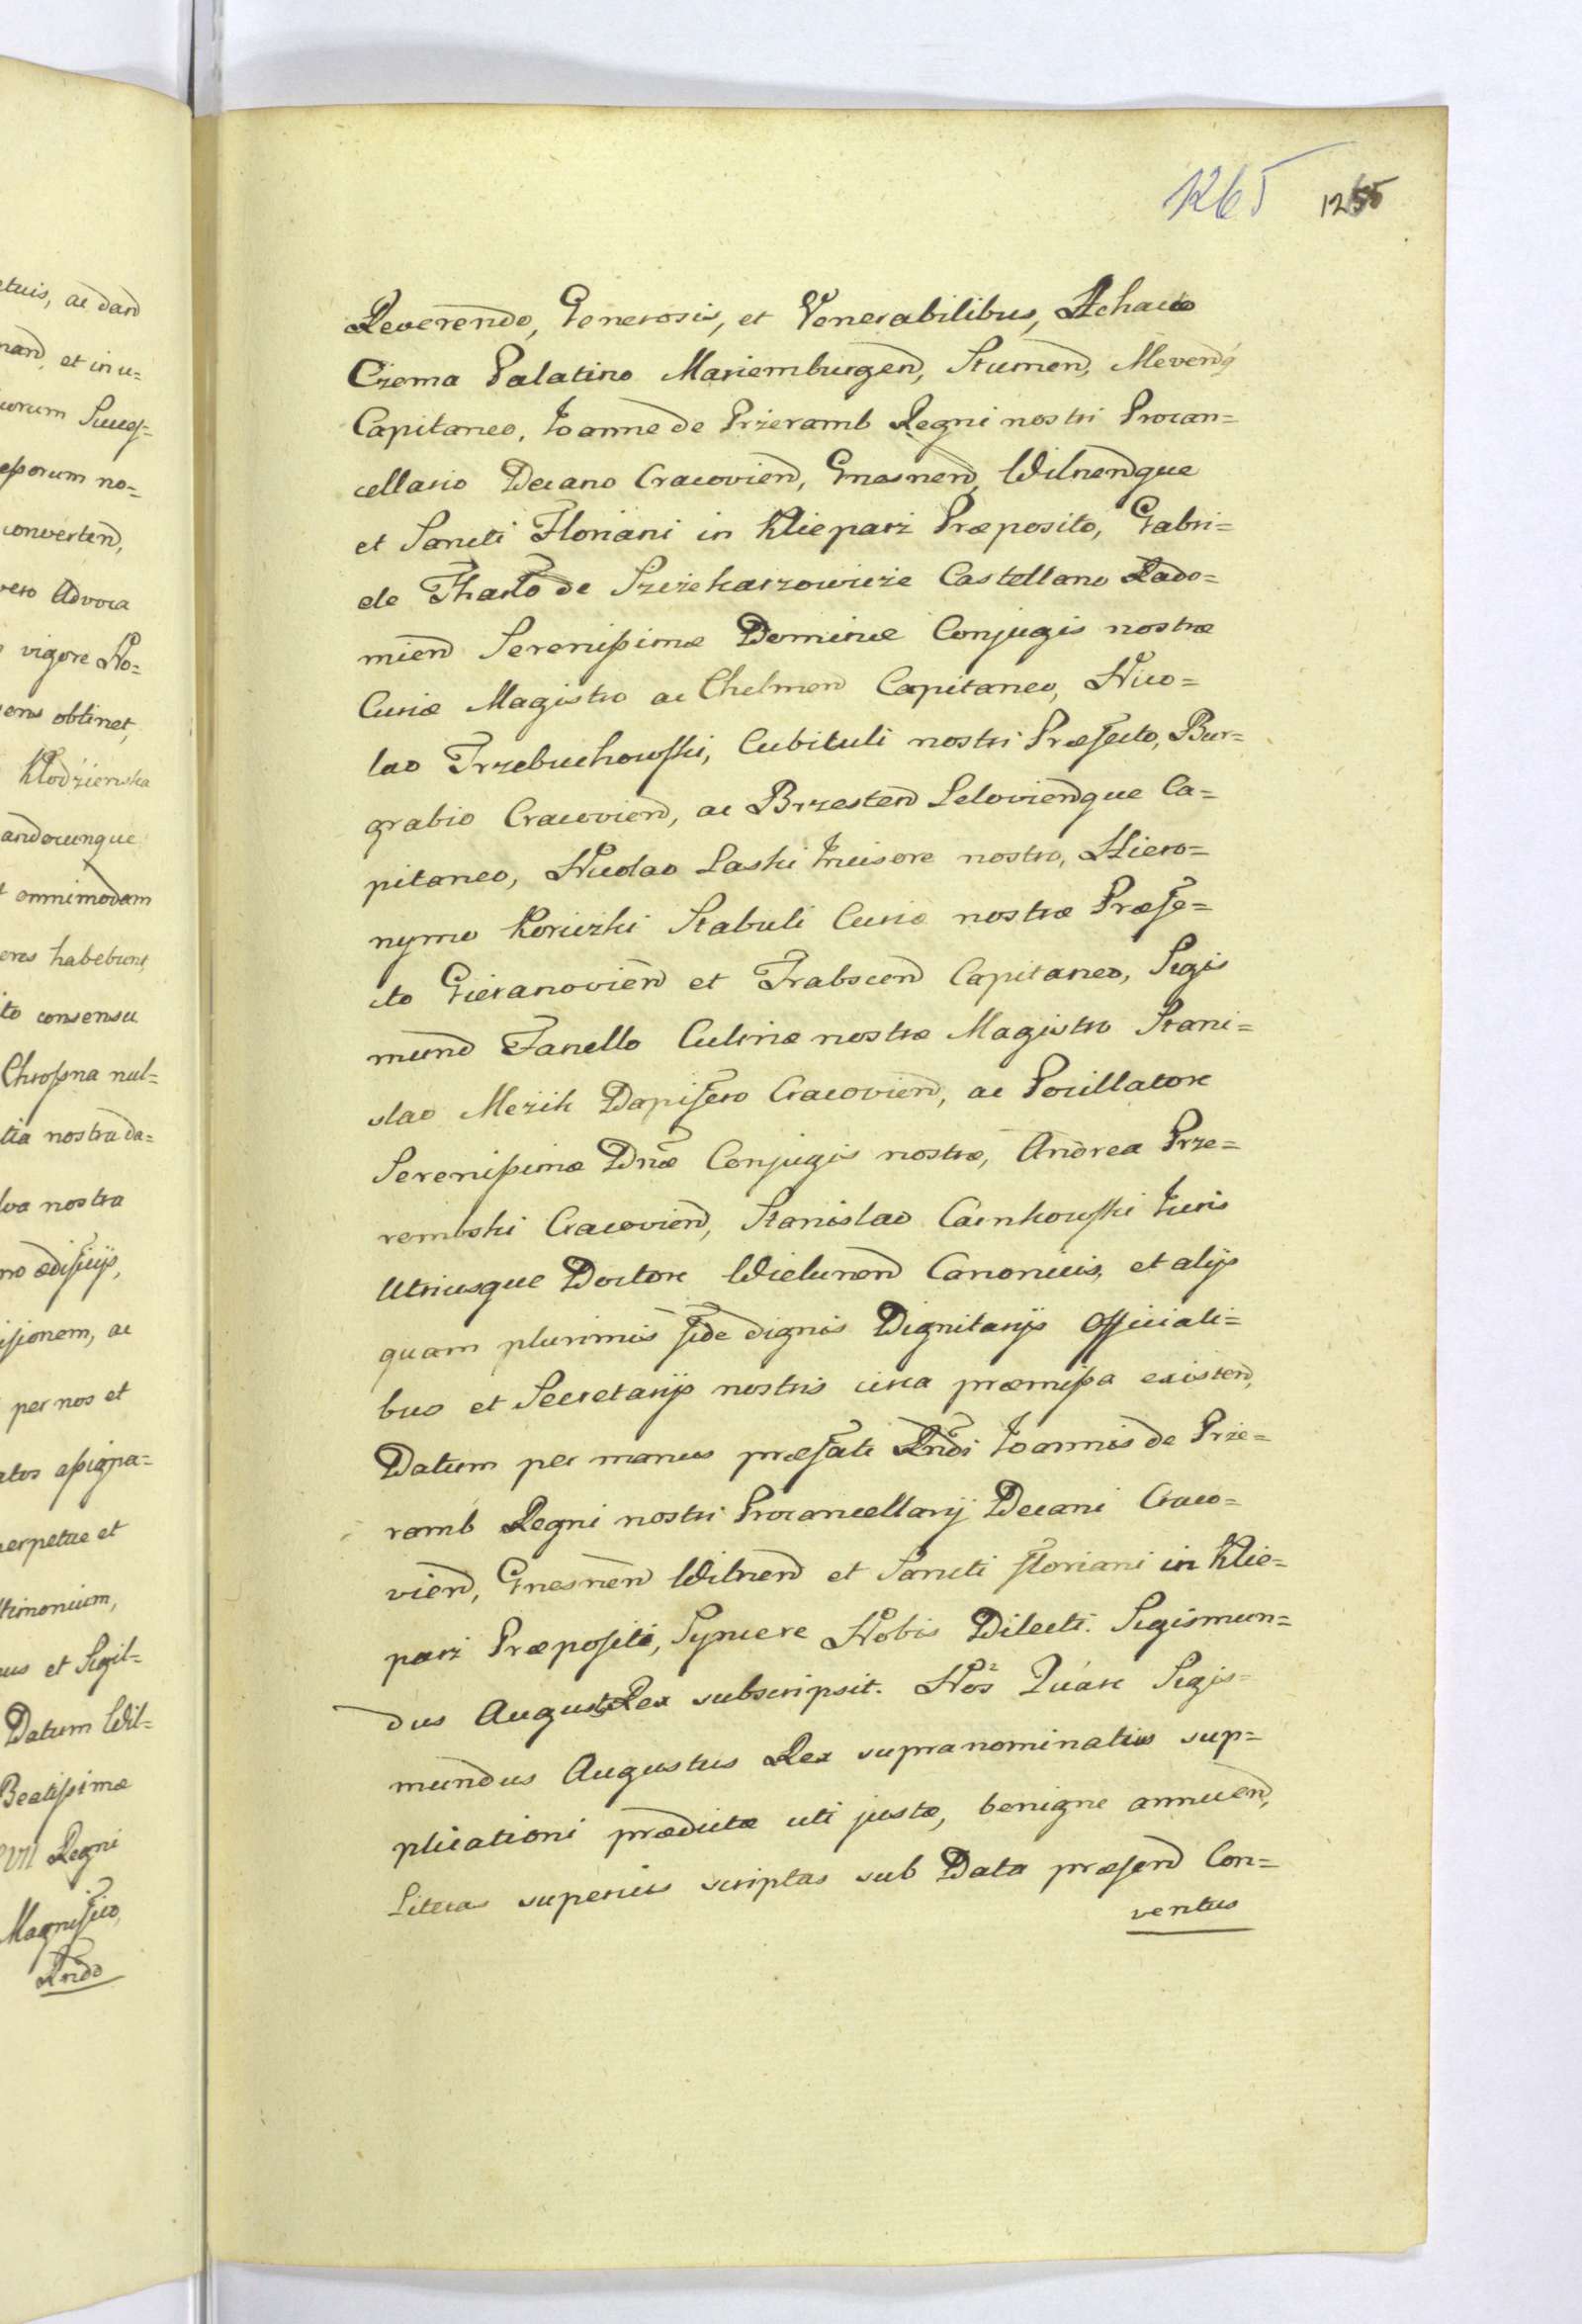 etuis, ac dand
nand, et in u=
iorum Succes=
essorum no=
convertend,
vero Advoca
vigore No=
ens obtinet,
Klodzienska
andocunque
omnimodam
eres habebunt
to consensu
Chrossna nul=
tia nostra da=
lva nostra
no ædificijs,
isionem, ac
per nos et
atos assigna=
erpetue et
timonium,
us et Sigil=
Datum Wil=
Beatissimæ
VII Regni
Magnifico,
Rndo
1265 1255
Reverendo, Generosis, et Venerabilibus, Achacio
Czema Palatino Mariemburgen, Stumen, Mevenq
Capitaneo, Joanne de Przeramb Regni nostri Procan=
cellario Decano Cracovien, Gnesnen, Wilnenque
et Sancti Floriani in Kliepari Præposito, Gabri=
ele Tharlo de Szczekarzowicze Castellano Rado=
mien Serenissimæ Dominæ Conjugis nostræ
Curiæ Magistro ac Chelmen Capitaneo, Nico=
lao Trzebuchowski, Cubituli nostri Præfecto, Bur=
grabio Cracovien, ac Brzesten Lelovienque Ca=
pitaneo, Nicolao Laski Incisore nostro, Hiero=
nymo Koriczki Stabuli Curiæ nostræ Præfe=
cto Gieranovien et Trabscen Capitaneo, Sigis
mund Fanello Culinæ nostræ Magistro Stani=
slao Mezik Dapifero Cracovien, ac Pocillatore
Serenissimæ Dnæ Conjugis nostræ, Andrea Prze=
rembski Cracovien, Stanislao Carnkowski Juris
Utriusque Doctore Wielunen Canonicis, et alijs
quam plurimis fide dignis Dignitarijs Officiali=
bus et Secretarijs nostris circa præmissa existen,
Datum per manus præfati Rndi Joannis de Prze=
ramb Regni nostri Procancellarij Decani Craco=
vien, Gnesnen Wilnen et Sancti Floriani in Klie=
pari Præpositi, Syncere Nobis Dilecti. Sigismun=
dus August9 Rex subscripsit. Nos Quare Sigis=
mundus Augustus Rex supranominatus sup=
plicationi prædictæ uti justæ, benigne annuen,
Literas superius scriptas sub Data præsen Con=
ventus